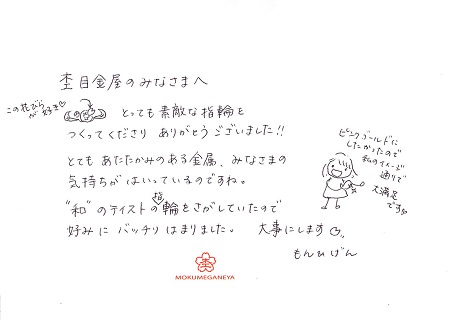 杢目金屋のみなさまへ
この花びらが好き♡
とっても素敵な指輪を
つくってくださり ありがとうございました!!
とてもあたたかみのある金属、みなさまの
気持ちがはいっているのですね。
"和"のテイストの指輪をさがしていたので
好みにバッチリはまりました。 大事にします
もんひげん
ピンクゴールドに
したかったので
私のイメージ
通りで
大満足
です
MOKUMEGANEYA